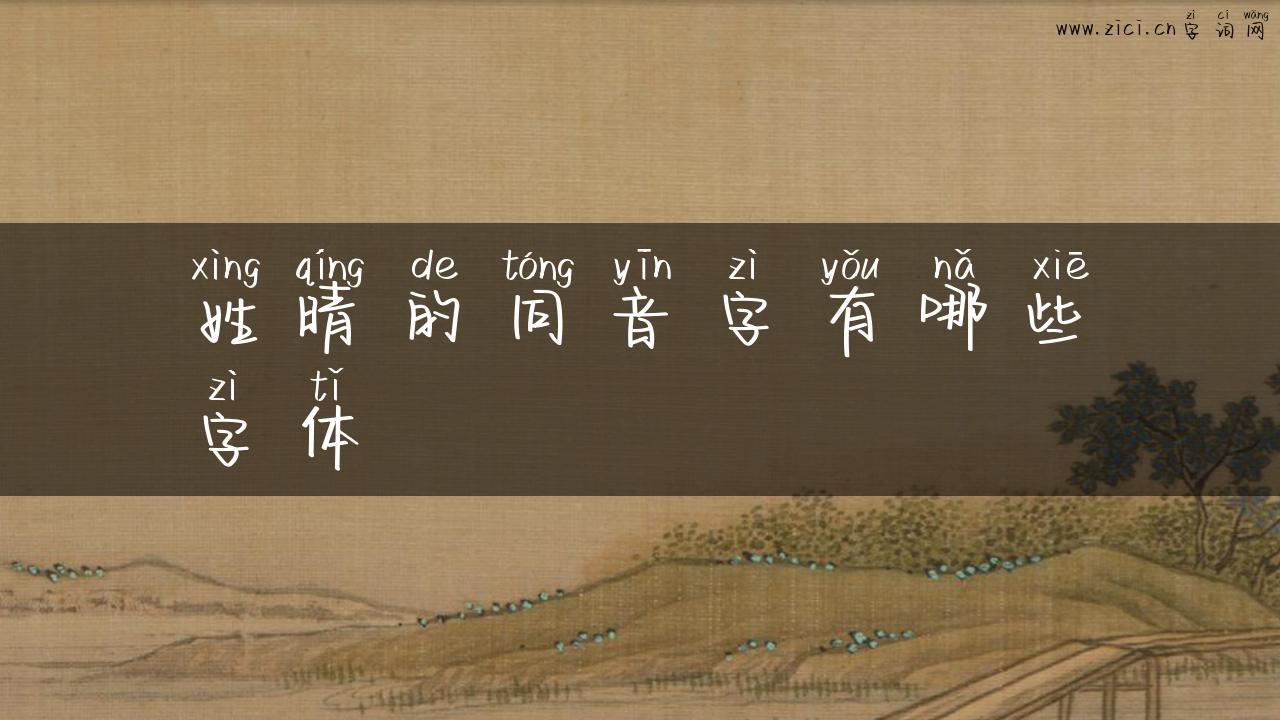 zì cí wǎng
www.zici.cn 字 词 网
xìng qíng de tóng yīn zì yǒu nǎ xiē
姓 晴 的 同 音 字 有 哪 些
zì tǐ
字 体